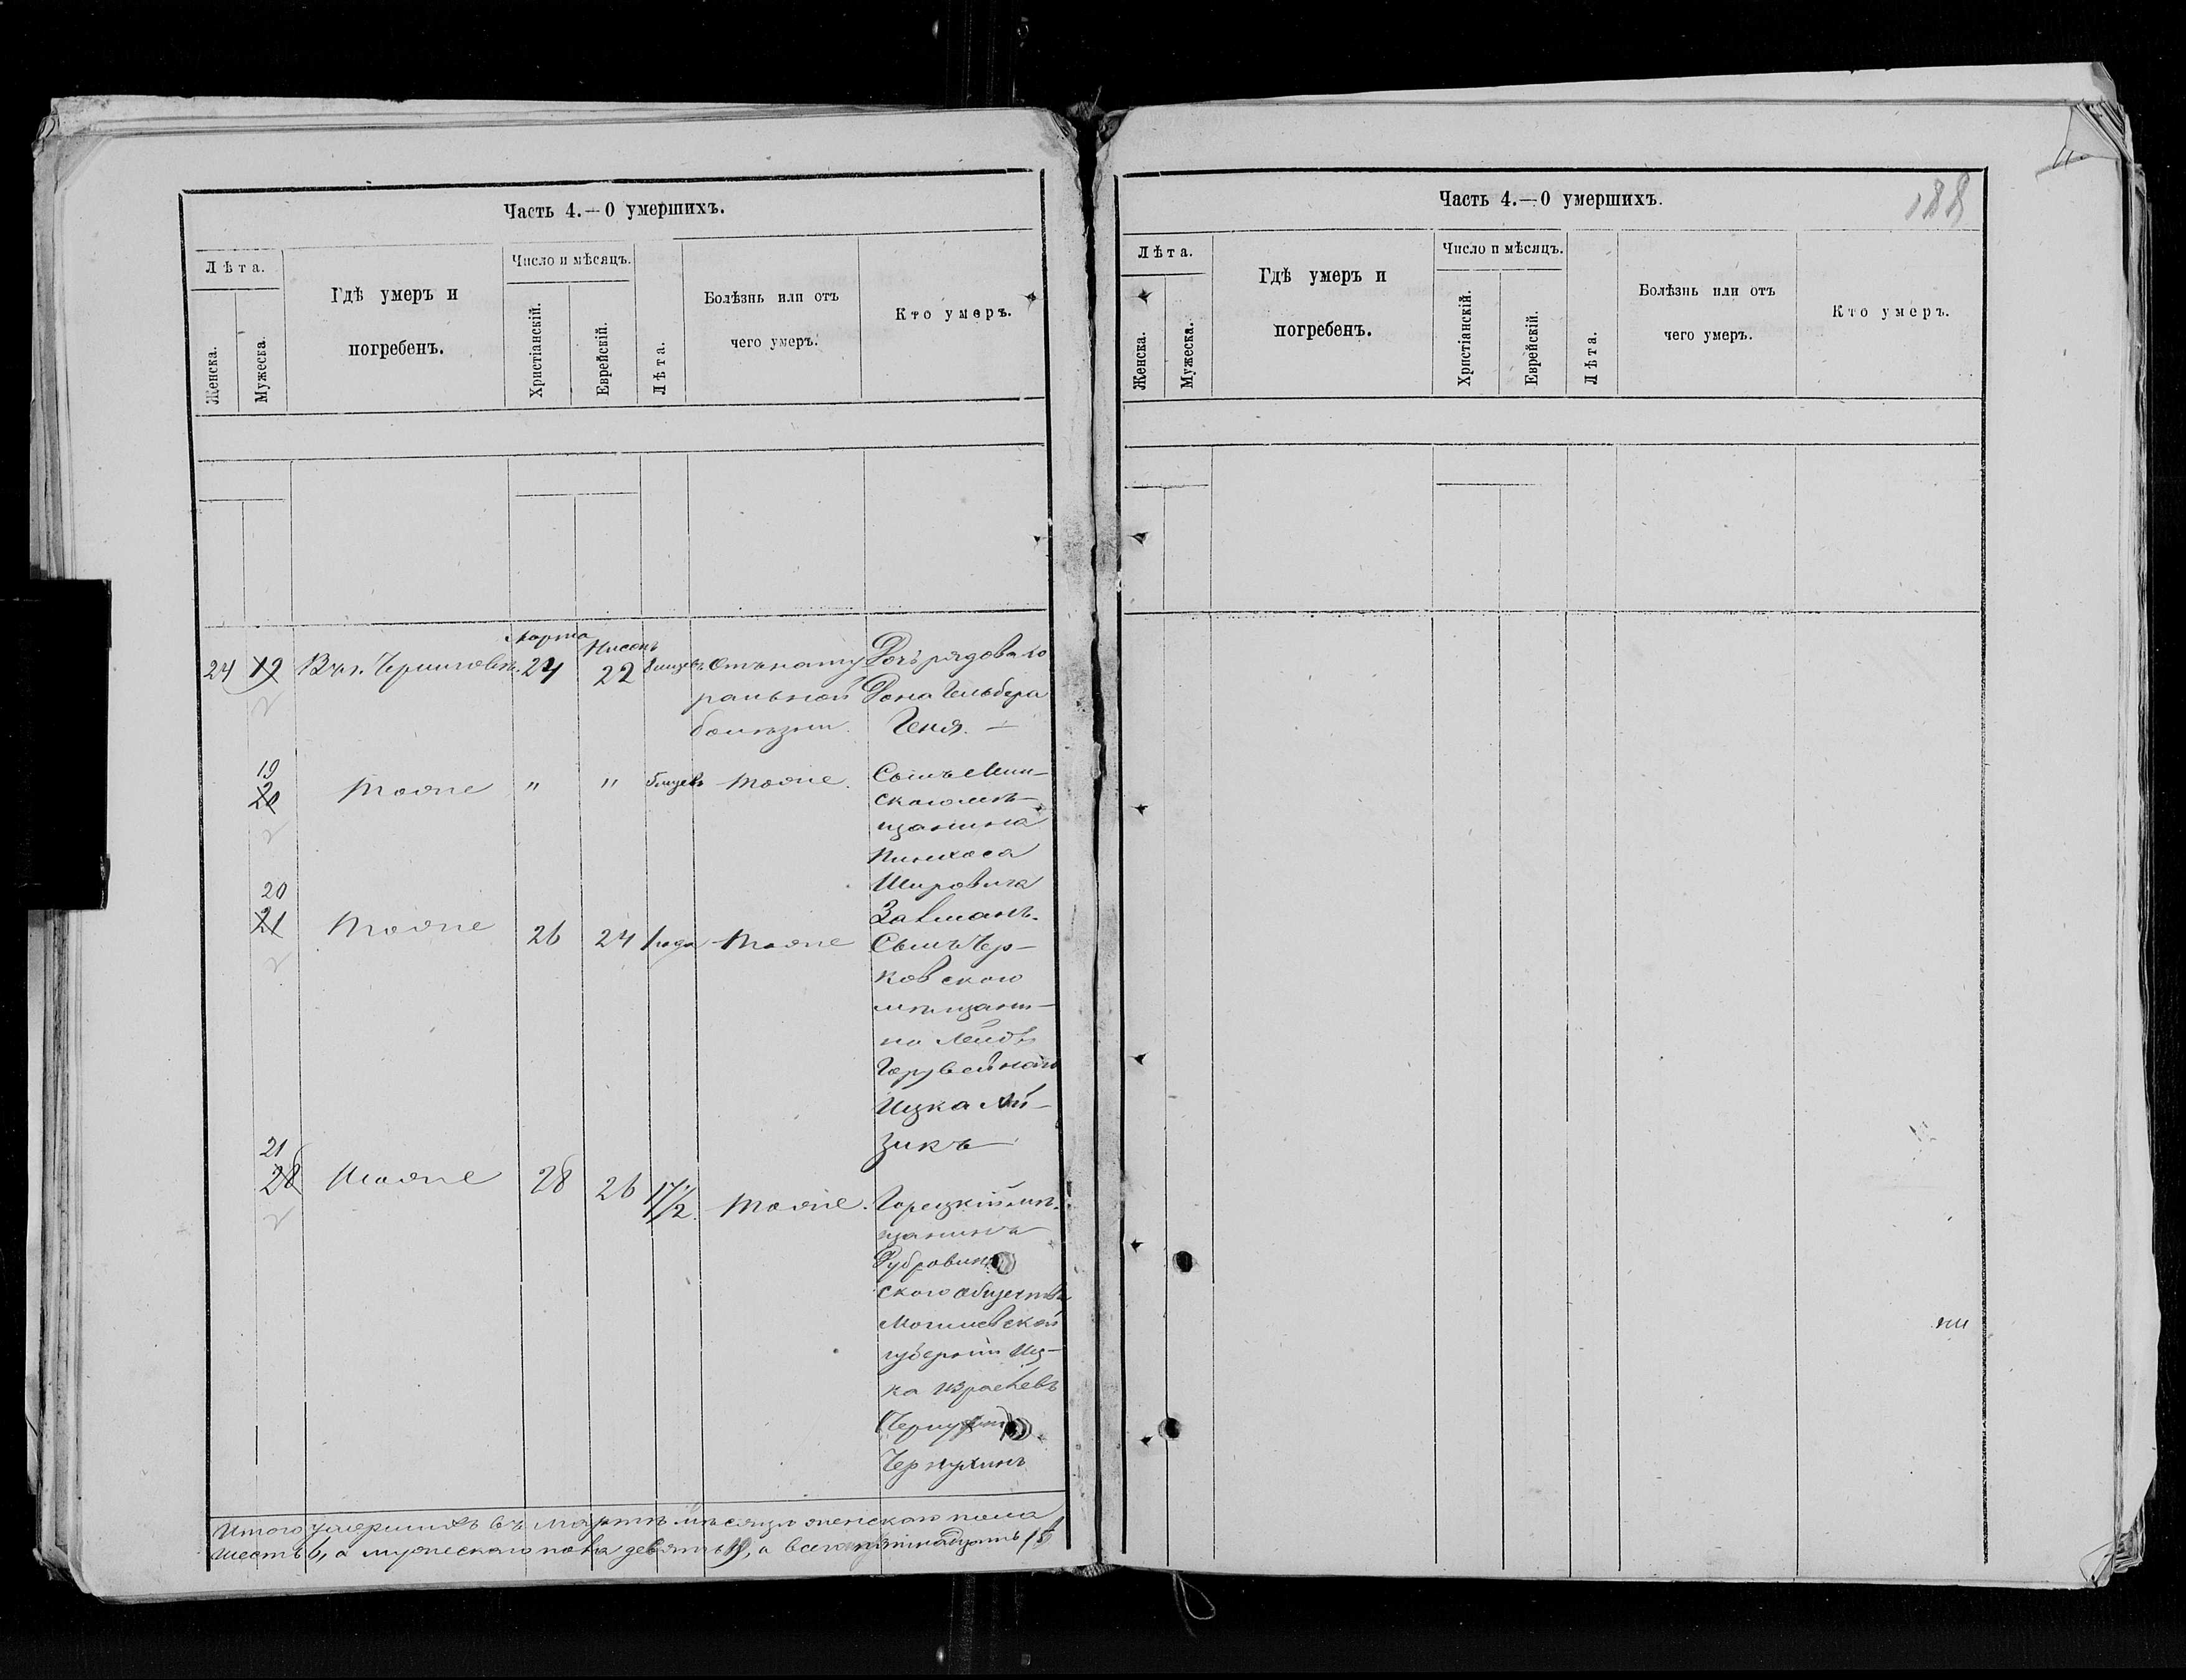 Часть 4.—О умершихъ.
Лѣта.
Женска.
Мужеска.
Гдѣ умеръ и
погребенъ.
Число и мѣсяцъ.
Христіанскій.
Еврейскій.
Лѣта.
Болѣзнь или отъ
чего умеръ.
Кто умеръ.
Марта
Нисонъ
24 19 В г. Черниговѣ. 24 22 Отъ нату
ральной
болѣзни.
Дочь рядоваго
Гена. —
19
20 Тоже " " Тоже.
Сынъ Мин–
скаго мѣ–
щанина
Пинхоса
Шировича
Залманъ.
20
21 Тоже 26 24 1 года Тоже
Сынъ Чер–
ковскаго
мѣщани–
на Лейбы
Ицка Ай–
зикъ
21
28 Тоже 28 26 17½. Тоже.
Горецкій мѣ–
щанинъ
Дубровин
скаго общества
Могилевской
губерніи Иц–
ка Израилевъ
Чернухинъ
Итого умершихъ въ Мартѣ мѣсяцѣ женскаго пола
шесть 6, а мужескаго пола девять 9, а всего пятнадцать 15
188
Часть 4.—О умершихъ.
Лѣта.
Женска.
Мужеска.
Гдѣ умеръ и
погребенъ.
Число и мѣсяцъ.
Христіанскій.
Еврейскій.
Лѣта.
Болѣзнь или отъ
чего умеръ.
Кто умеръ.